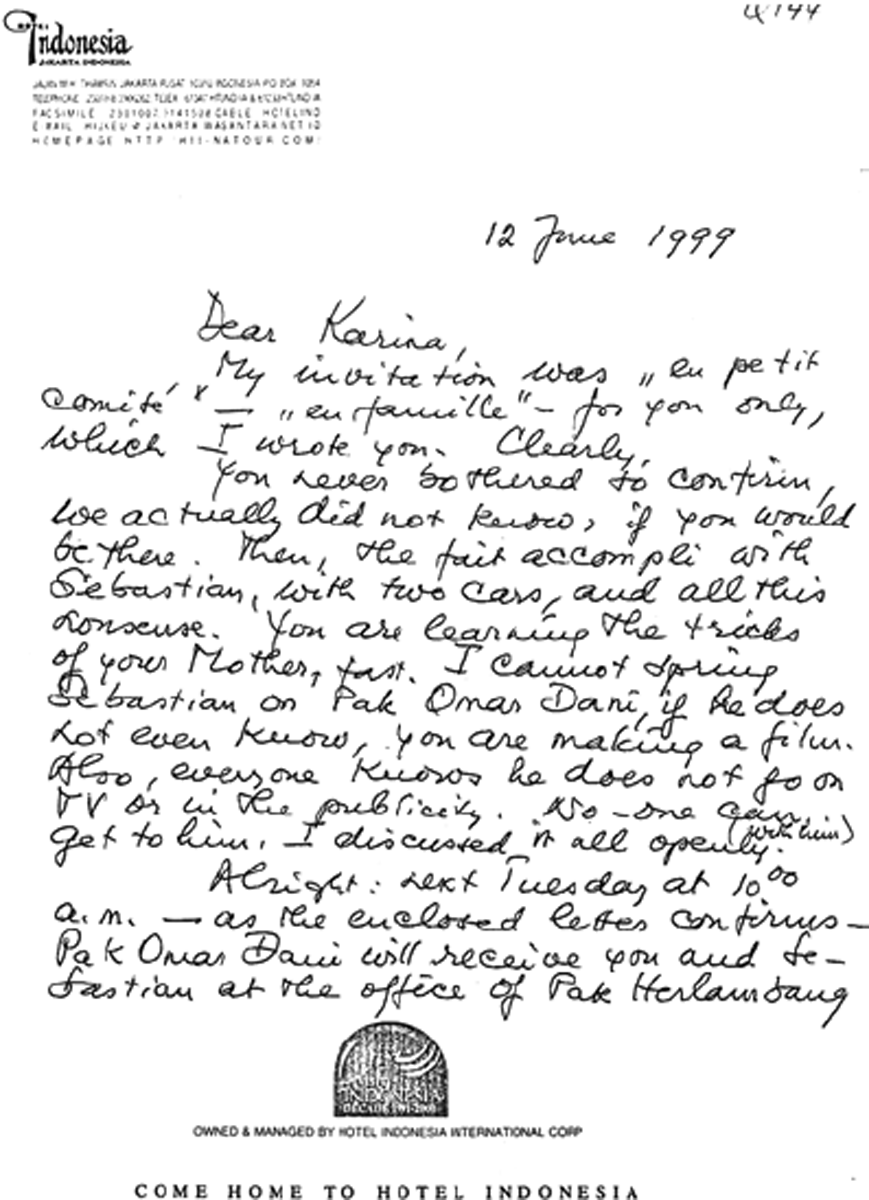 4144
HOTEL
Indonesia
JAKARTA INDONESIA
JALAN M.H. THAMRIN JAKARTA PUSAT INDONESIA P.O. BOX
TELEPHONE TELEX
FACSIMILE CABLE HOTELIND
E MAIL @ JAKARTA WASANTARA NET ID
HOMEPAGE HTTP HII-NATOUR COM/
12 June 1999
Dear Karina,
My invitation was „en petit
comité" — „en famille" – for you only,
which I wrote you. Clearly.
You never bothered to confirm,
we actually did not know, if you would
be there. Then, the fait accompli with
Sebastian, with two cars, and all this
nonsense. You are learning the tricks
of your Mother, fast. I cannot spring
Sebastian on Pak Omar Dani, if he does
not even know, you are making a film.
Also, everyone knows he does not go on
TV or in the publicity. No-one can
get to him. I discussed it all openly (with him).
Alright: next Tuesday at 10⁰⁰
a.m. — as the enclosed letter confirms —
Pak Omar Dani will receive you and Se-
bastian at the office of Pak Herlambang
INDONESIA
OWNED & MANAGED BY HOTEL INDONESIA INTERNATIONAL CORP
COME HOME TO HOTEL INDONESIA